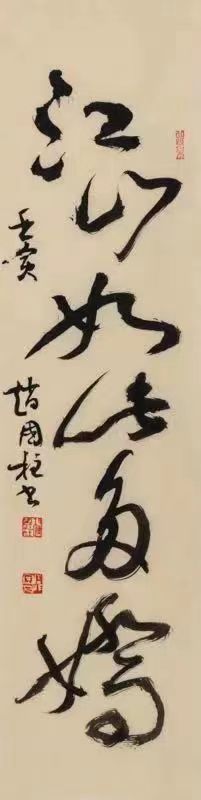 江山如此多娇
壬寅
赵国柱书